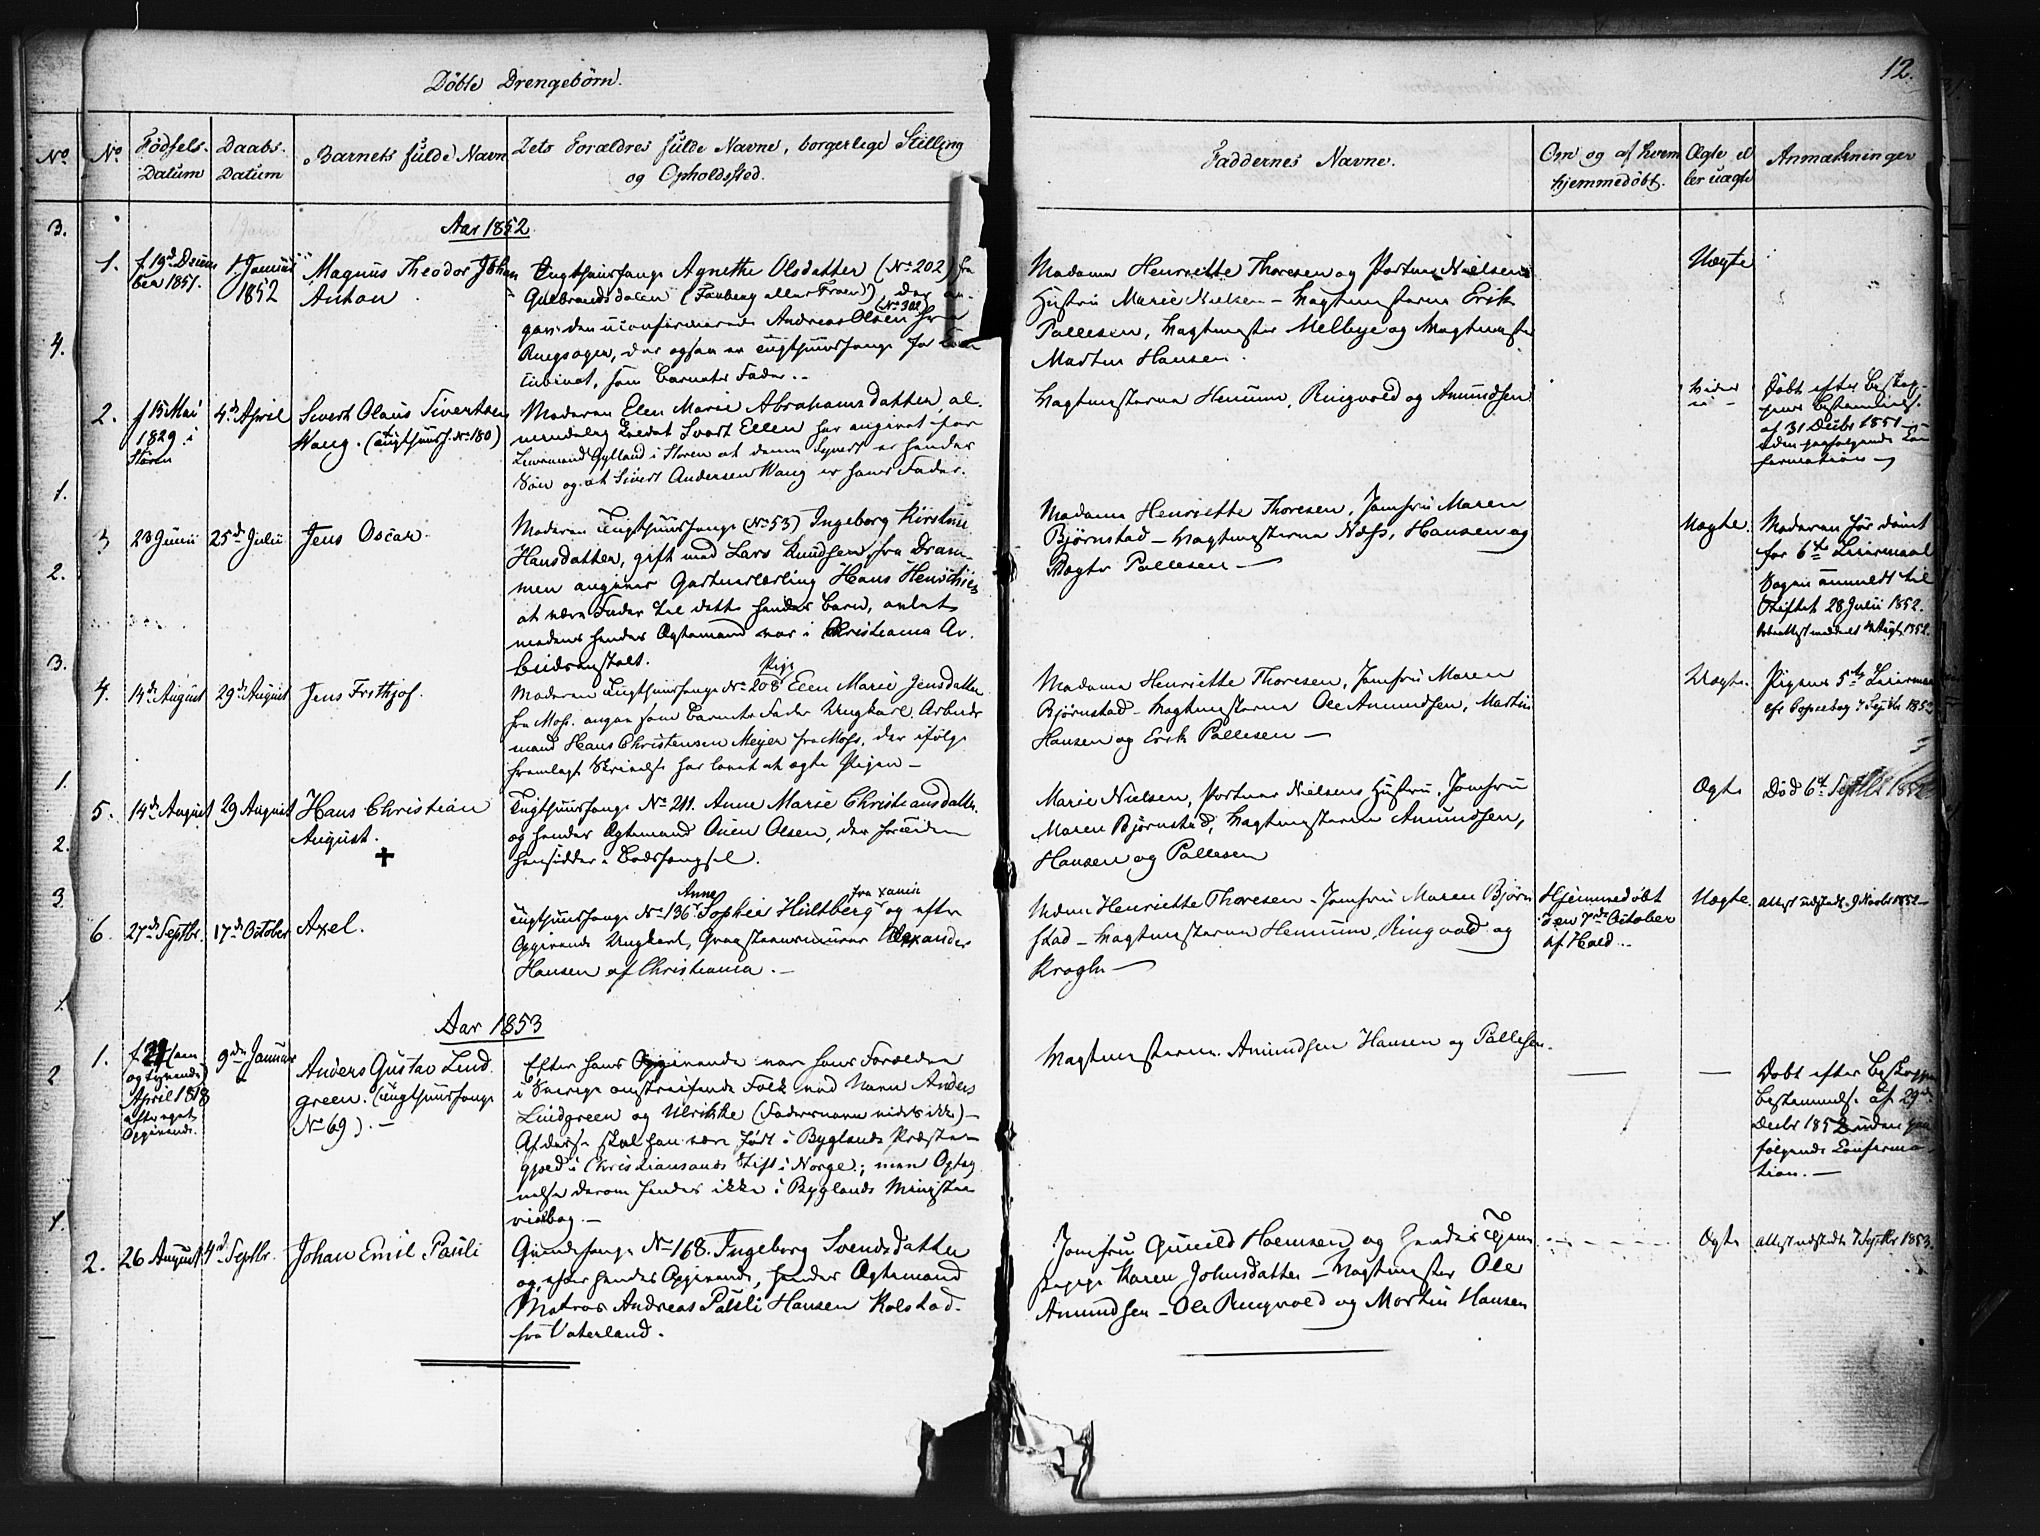 12.
Döbte Drengebörn.
No
No
Födsels-
Datum
Daabs-
Datum
Barnets fulde Navn
Dets Forældres fulde Navne, borgerlige Stilling
og Opholdssted.
Faddernes Navne.
Om og af hvem
hjemmedöbt.
Ægte el
ler uægte
Anmærkninger
3.
Aar 1852
1.
f. 19de Decem
ber 1851.
1. Januar
1852
Magnus Theodor Johan
Anton
Tugthuusfange Agnethe Olsdatter (No 202) fra
Gulbrandsdalen (Faaberg eller Froen) der an-
gav den uconfirmerede Andreas Olsen (No 302) fra
Ringsager, der ogsaa er Tugthuusfange for
, som Barnets Fader.-
Madame Henriette Thoresen og Portner Nielsens
Hustru Marie Nielsen - Vagtmesterne Erik
Pallesen, Vagtmester Melbye og Vagtmester
Martin Hansen.
Uægte
4.
2.
f 15 Mai
1829 i
Stören
4de April
Sivert Olaus Sivertsen
Wang. (Tugthuusf. No 180)
Moderen Elen Marie Abrahamsdatter, al-
mindelig kaldet Svart Ellen har angivet for
Lensmand Gylland i Stören at denne Syvert er hendes
Sön og at Sivert Andersen Wang er hans Fader.
Vagtmesterne Hemum, Ringvold og Amundsen
Döbt efter Biskop-
pens Bestemmelse
af 31 Decbr 1851
uden paafölgende Con-
firmation
1.
3
23 Juni
25de Julii
Jens Oscar.
Moderen Tugthuusfange (No 53) Ingeborg Kirstine
Hansdatter, gift med Lars Knudsen fra Dram-
men angiver Gartnerlærling Hans Henrichsen
at være Fader til dette hendes Barn, avlet
medens hendes Ægtemand var i Christiania Ar-
beidsanstalt.
Madame Henriette Thoresen, Jomfru Maren
Björnstad - Vagtmesterne Næss, Hansen og
Vagtm Pallesen -
Uægte.
Moderen för dömt
for 6te Leiermaal
Sagen anmeldt til
Stiftet 28 Julii 1852.
2.
3.
4.
14de August
29de August
Jens Frithjof.
Moderen Tugthuusfange No 208 Pige Elen Marie Jensdatter
fra Moss. angav som Barnets Fader Ungkarl Arbeids-
mand Hans Christensen Meyer fra Moss, der ifölge
fremlagt Skrivelse har lovet at ægte Pigen -
Madame Henriette Thoresen, Jomfru Maren
Björnstad - Vagtmesterne Ole Amundsen, Martin
Hansen og Erik Pallesen -
Uægte.
Pigens 5te Leiermaal
cfr Copiebog 7 Septbr 1852
1.
5.
14de August
29 August
Hans Christian
August.
✝
Tugthuusfange No 211. Anne Marie Christiansdatter
og hendes Ægtemand Ouen Olsen, der for Tiden
hensidder i Bodsfængsel.
Marie Nielsen, Portner Nielsens Hustru, Jomfru
Maren Björnstad, Vagtmesterne Amundsen,
Hansen og Pallesen
Ægte
Död 6te Septbr 1852
2.
3
6.
27de Septbr.
17de October
Axel.
Tugthuusfange No 136 Anne Sophie Hultberg fra Xania og efter
Opgivende Ungkarl, Graasteensmurer Alexander
Hansen af Christiania. -
Mdme Henriette Thoresen - Jomfru Maren Björn
stad - Vagtmesterne Hemum, Ringvold og
Krogh -
Hjemmedöbt
den 7de October
af Hald -
Uægte
Attest udstedt 9 Novbr 1852 -
1.
Aar 1853
2
1.
f 29 (een
og tyvende)
April 1818
efter eget
Opgivende.
9de Januar
Anders Gustav Lind
green. (Tugthuusfange
No 69). -
Efter hans Opgivende var hans Forældre
i Sverige omstreifende Folk ved Navn Anders
Lindgreen og Ulrikke (Fadersnavn vides ikke) -
Af disse skal han være födt i Byglands Præste-
gjeld i Christiansands Stift i Norge; men Opteg-
nelse derom findes ikke i Byglands Ministe
rialbog. -
Vagtmesterne Amundsen Hansen og Pallesen.
Döbt efter Biskoppens
Bestemmelse af 29de
Decbr 1852 uden paa
fölgende Confirma-
tion. -
1.
2.
26 August
4de Septbr.
Johan Emil Pauli
Qvindefange No 168. Ingeborg Svendsdatter
og efter hendes Opgivende, hendes Ægtemand
Matros Andreas Pauli Hansen Kolstad.
fra Vaterland.
Jomfru Gunild Halmsen og hendes Tjene
stepige Karen Johnsdatter - Vagtmester Ole
Amundsen - Ole Ringvold og Martin Hansen
Ægte
Attest udstedt 7 Septbr 1853.